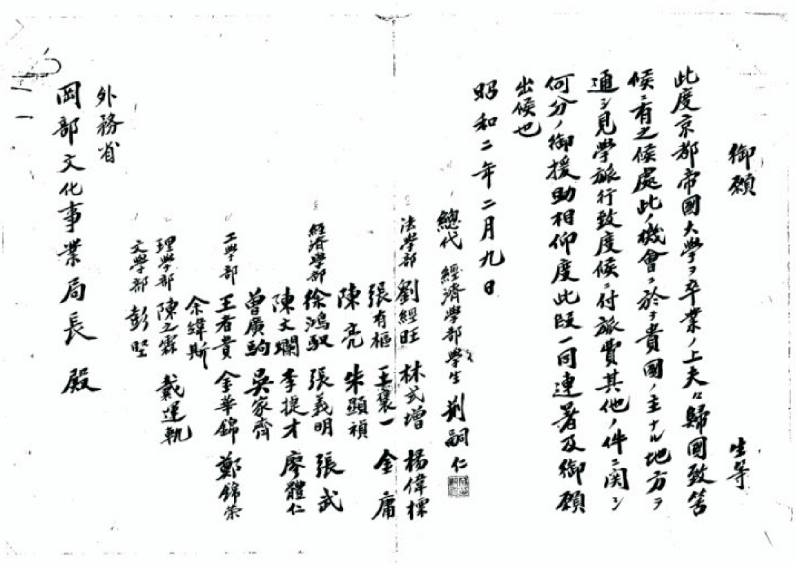 御願
生等
此度京都帝國大學ヲ卒業ノ上夫々歸國致筈
候ニ有之候處此ノ機會ニ於テ貴國ノ主ナル地方ヲ
通シ見學旅行致度候ニ付旅費其他ノ件ニ関シ
何分ノ御援助相仰度此段一同連署及御願
出候也
昭和二年二月九日
總代 經濟學部學生 劉嗣仁
法學部 劉經旺 林式增 楊偉標
張有樞 王襄一 金庸
陳亮 朱顯禎
經濟學部 徐鴻馭 張義明 張武
陳文瀾 李提才 廖體仁
曾廣駒 吳家齊
工學部 王者貴 金華錦 鄭錦榮
余緯斯
理學部 陳之霖 戴運軌
文學部 彭堅
外務省
岡部文化事業局長殿